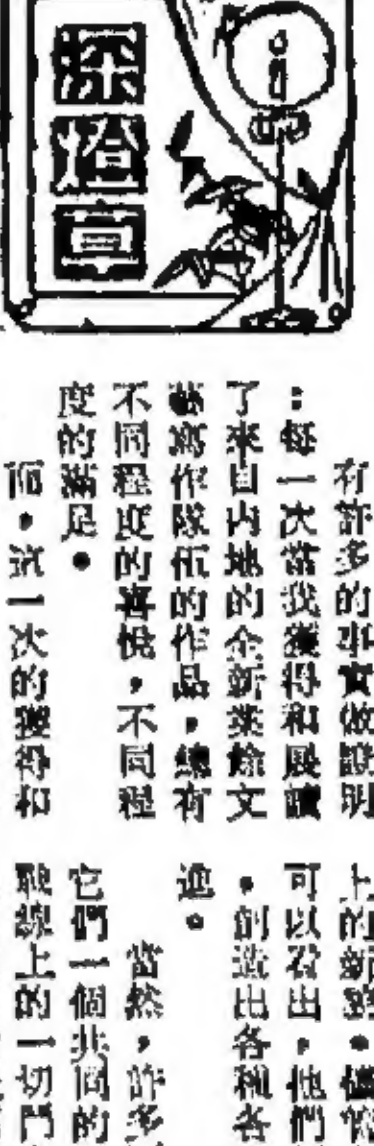 深燈章
有許多的事實做證明
：每一次當我獲得和展讀
了來自內地的全新業餘文
藝寫作隊伍的作品，總有
不同程度的喜悅，不同程
度的滿足。
而，這一次的獲得和
上的新
可以看出，他們
，創造出各種各
進。
當然，許多
它們一個共同的
戰線上的一切鬥